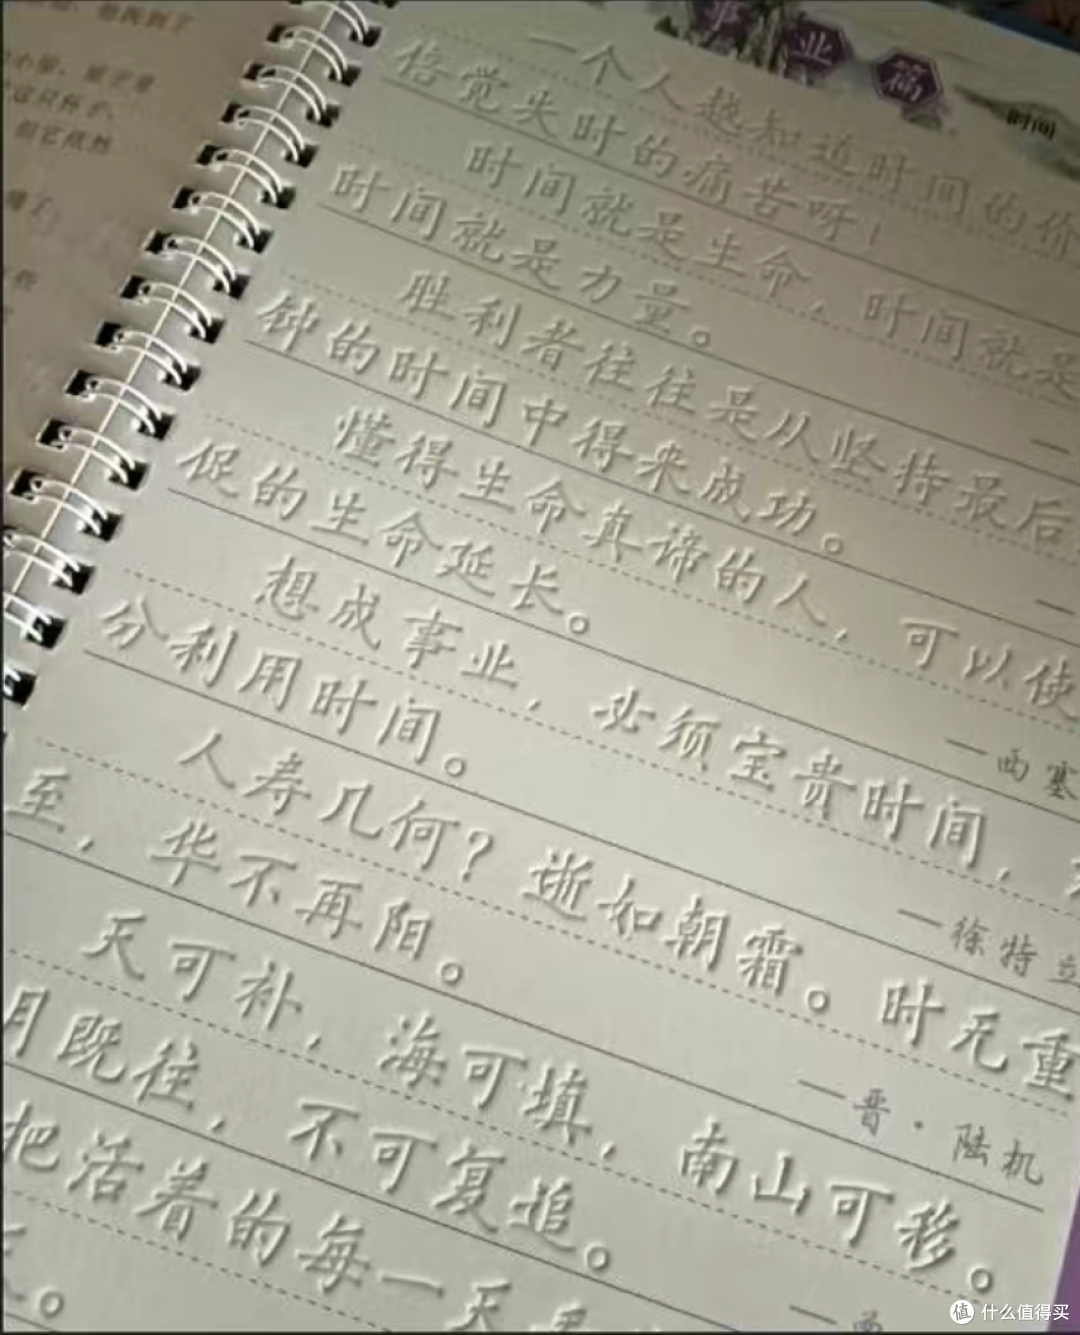 想找到了
事业篇
时间
一个人越知道时间的价
倍觉失时的痛苦呀！
时间就是生命，时间就是
时间就是力量。
胜利者往往是从坚持最后
钟的时间中得来成功。
懂得生命真谛的人，可以使
促的生命延长。
—西塞
想成事业，必须宝贵时间，
分利用时间。
—徐特立
人寿几何？逝如朝霜。时无重
至，华不再阳。
—晋·陆机
天可补，海可填，南山可移。
月既往，不可复追。
把活着的每一天
值 什么值得买